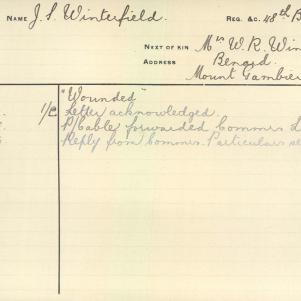 NAME J. S. Winterfield. REG. &C. 48th B
NEXT OF KIN Mrs W. R. Win
ADDRESS
Mount Gambier
"Wounded"
Letter acknowledged.
P/Cable forwarded Commrs
Reply from Commrs. Particulars